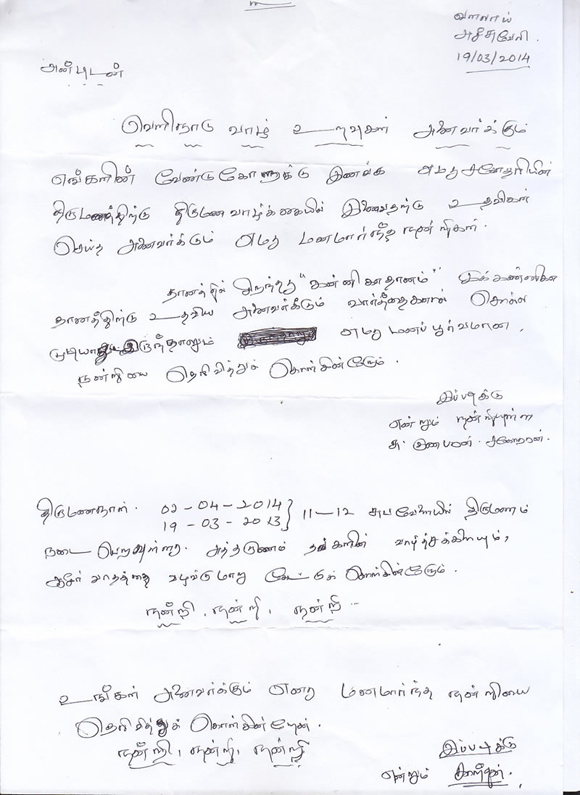 வளலாய்
அச்சுவேலி.
19/03/2014
அன்புடன்
வெளிநாடு வாழ் உறவுகள் அனைவர்க்கும்
எங்களின் வேண்டுகோளுக்கு இணங்க எமது சகோதரியின்
திருமணத்திற்கு திருமண வாழ்க்கையில் இணைவதற்கு உதவிகள்
செய்த அனைவர்க்கும் எமது மனமார்ந்த நன்றிகள்.
தானத்தில் சிறந்தது "கன்னிகாதானம்" இக் கன்னிகா
தானத்திற்கு உதவிய அனைவர்க்கும் வார்த்தைகளால் சொல்ல
முடியாது இருந்தாலும் எமது மனப்பூர்வமான
நன்றியை தெரிவித்துக் கொள்கின்றோம்.
இப்படிக்கு
என்றும் நன்றியுள்ள
சகோதரன்.
திருமணநாள். 02-04-2014 } 11-12 சுபவேளையில் திருமணம்
19-03-2013
நடை பெறவுள்ளது. அத்தருணம் தங்களின் வாழ்த்துக்களையும்,
ஆசீர்வாதத்தை வழங்குமாறு கேட்டுக் கொள்கின்றோம்.
நன்றி, நன்றி, நன்றி
உங்கள் அனைவர்க்கும் எனது மனமார்ந்த நன்றியை
தெரிவித்துக் கொள்கின்றேன்.
நன்றி, நன்றி, நன்றி
இப்படிக்கு
என்றும்